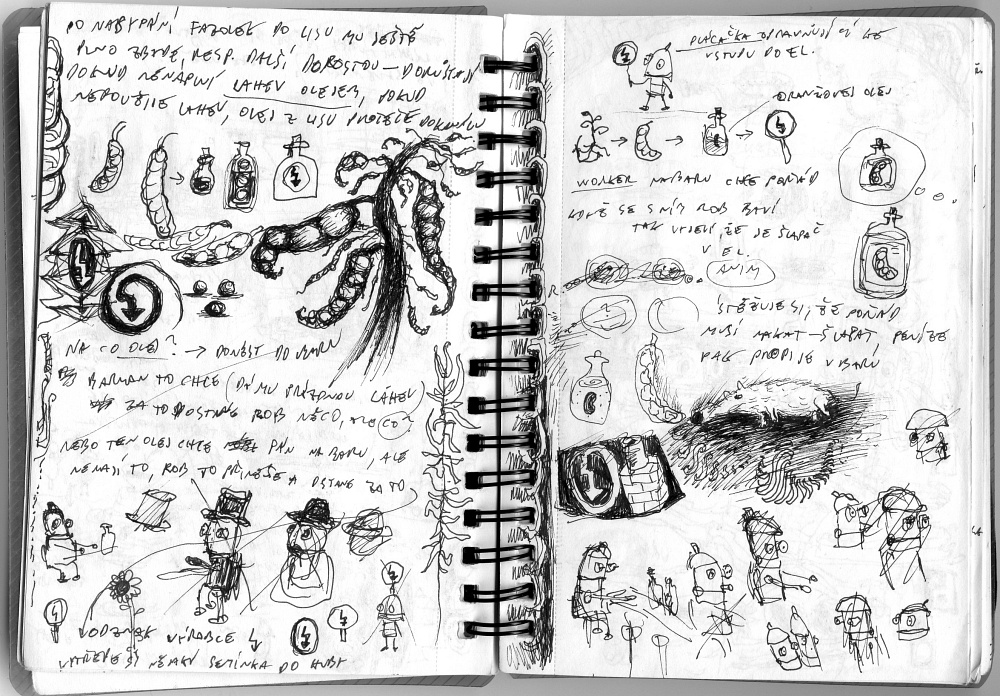 PO NASYPÁNÍ FAZOLEK DO LISU MU JEŠTĚ
PLNO ZBYDE, RESP. DALŠÍ DOROSTOU —
DOKUD NENAPLNÍ LAHEV OLEJEM, POKUD
NEPOUŽIJE LAHEV, OLEJ Z LISU PROTEČE
NA CO OLEJ? → DONÉST DO BARU
BARMAN TO CHCE (DÁ MU PRÁZDNOU LÁHEV)
ZA TO DOSTANE ROB NĚCO, ALE CO?
NEBO TEN OLEJ CHCE PÁN NA BARU, ALE
NEMAJÍ TO, ROB TO PŘINESE A DSTANE ZA TO
VODZNAK VÝROBCE
SEMÍNKA DO
PLÁCAČKA OPRAVŇUJÍCÍ KE
VSTUPU DO EL.
ORANŽOVEJ OLEJ
WORKER NA BARU CHCE POŘÁD
KDYŽ SE S NÍM ROB BAVÍ
TAK VYJEVÍ, ŽE JE ŠLAPAČ
V EL.
ANIM
STĚŽUJE SI, ŽE POŘÁD
MUSÍ MAKAT — ŠLAPAT, PENÍZE
PAK PROPIJE V BARU